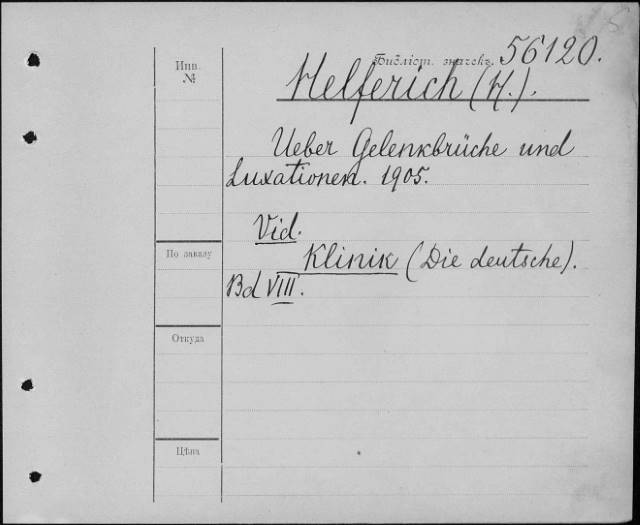 Библіот. значекъ. 56120.
Инв.
№
Helferich (H.).
Ueber Gelenkbrüche und
Luxationen. 1905.
Vid.
По заказу
Klinik (Die deutsche).
Bd VIII.
Откуда
Цѣна